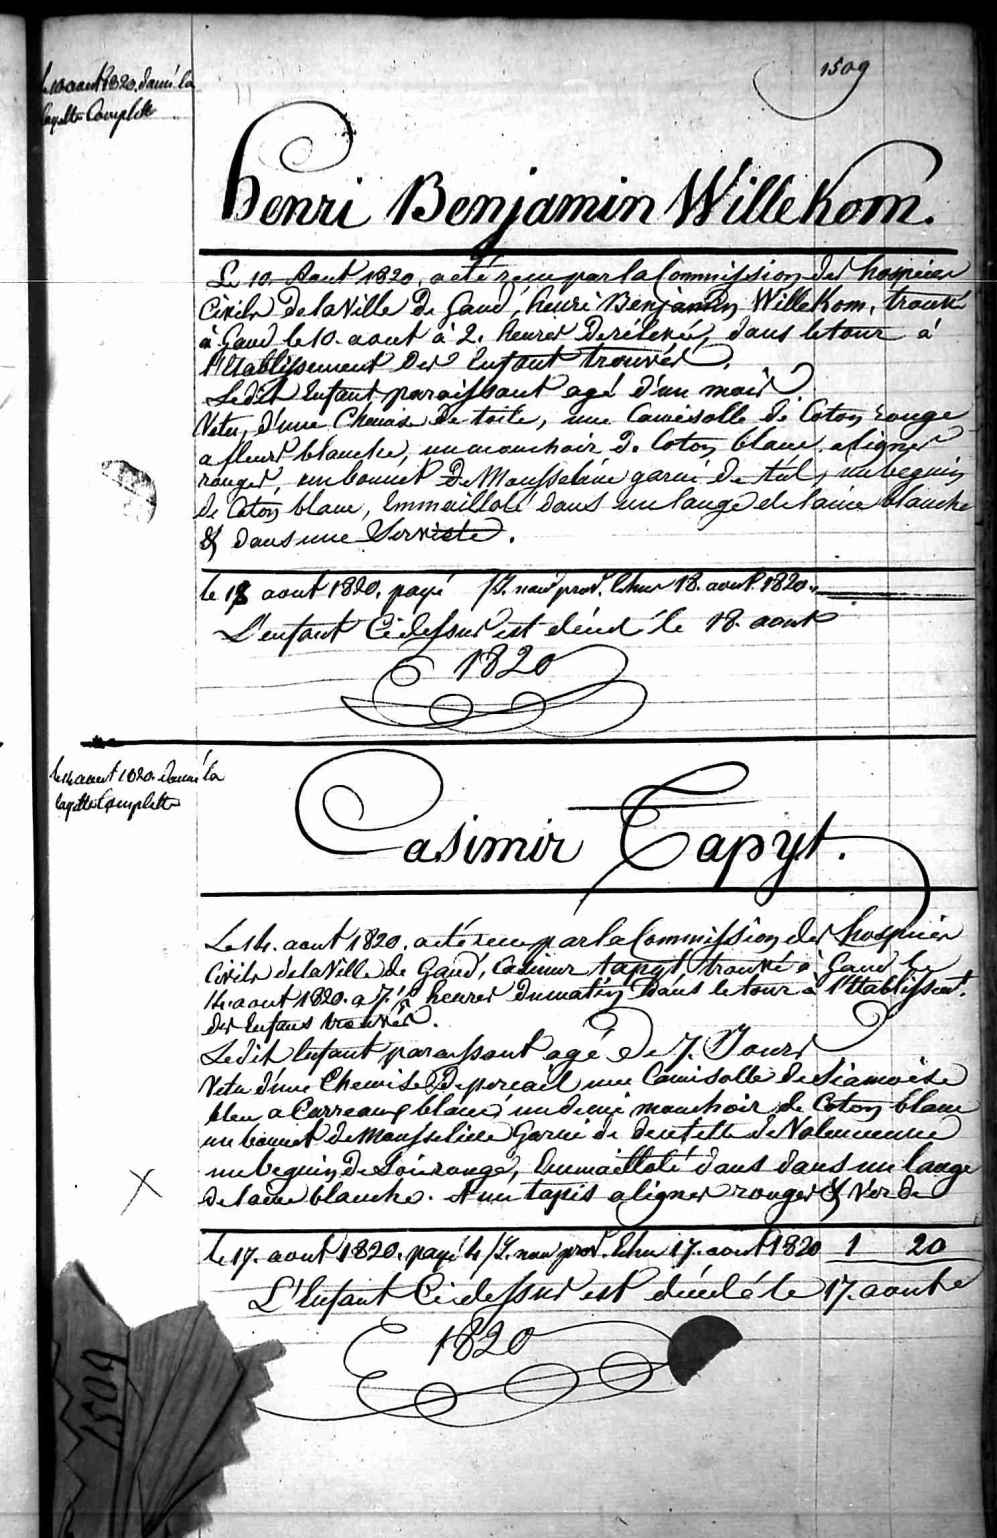 1509
le 10 aout 1820. donné la
layette Complette
Henri Benjamin Willekom.
Le 10. Aout 1820, a eté recu par la Commission des hospices
Civils de la Ville de Gand, henri Benjamin Willekom, trouvé
à Gand le 10. aout à 2. heures de rélevé, dans le tour à
l'Etablissement des Enfant trouvés.
Ledit Enfant paraissant agé d'un mois
Vetu, d'une Chemise de toile, une Camisolle de Coton rouge
a fleurs blanche, un mouchoir de Coton blanc a lignes
rouges, un bonnet de Mousseline garni de tul, un beguin
de Coton blanc, Emmailloté dans un lange de laine blanche
& dans une Serviete.
le 18 aout 1820. payé nour prov. Echu 18. aout 1820.
L'enfant Cidessus est décéd le 18. aout
1820
le 14 aout 1820. donné la
layette Complette
Casimir Tapyt.
Le 14. aout 1820. a eté recu par la Commission des hospices
Civils de la Ville de Gand, Casimir tapyt, trouvé à Gand le
14. aout 1820. a 7. 1/2 heures du matin dans le tour à l'Etablissemt.
des Enfans trouvés.
Ledit Enfant paraissant agé de 7. Jours
Vetu d'une Chemise de percail une Camisolle de Siamoise
bleu a Carreaux blanc, un demi mouchoir de Coton blanc
un bonnet de Mousseline Garni de dentelle de Valencienne
un beguin de Soie rouge, Emmailloté dans dans un lange
de laine blanche. & un tapis a lignes rouges & Verde
le 17. aout 1820. payé 4 nour prov. Echu 17. aout 1820 1 20
L'Enfant Cidessus est décédé le 17. aout
1820
1509